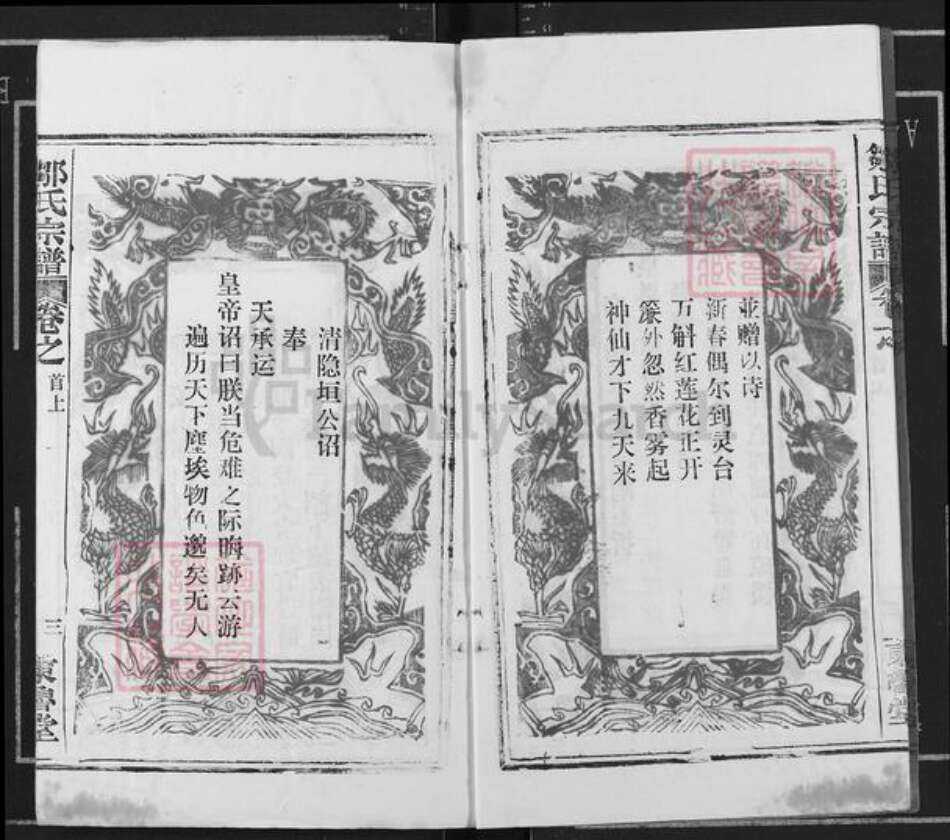 並赠以诗
新春偶尔到灵台
万斛红莲花正开
簾外忽然香雾起
神仙才下九天来
清隐垣公诏
奉
天承运
皇帝诏曰朕当危难之际晦跡云游
遍历天下塵埃物色邈矣无人
邹氏宗譜
卷之
首上
三
東魯堂